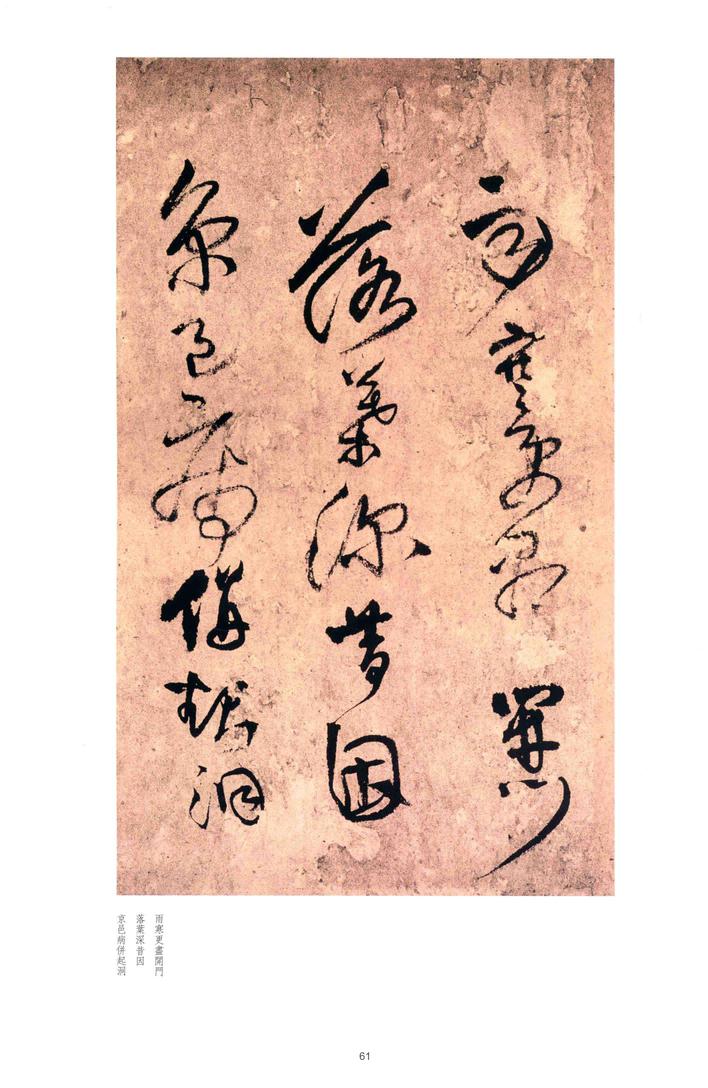 雨寒更盡開門
落葉深昔因
京邑病併起洞
雨寒更盡開門
落葉深昔因
京邑病併起洞
61